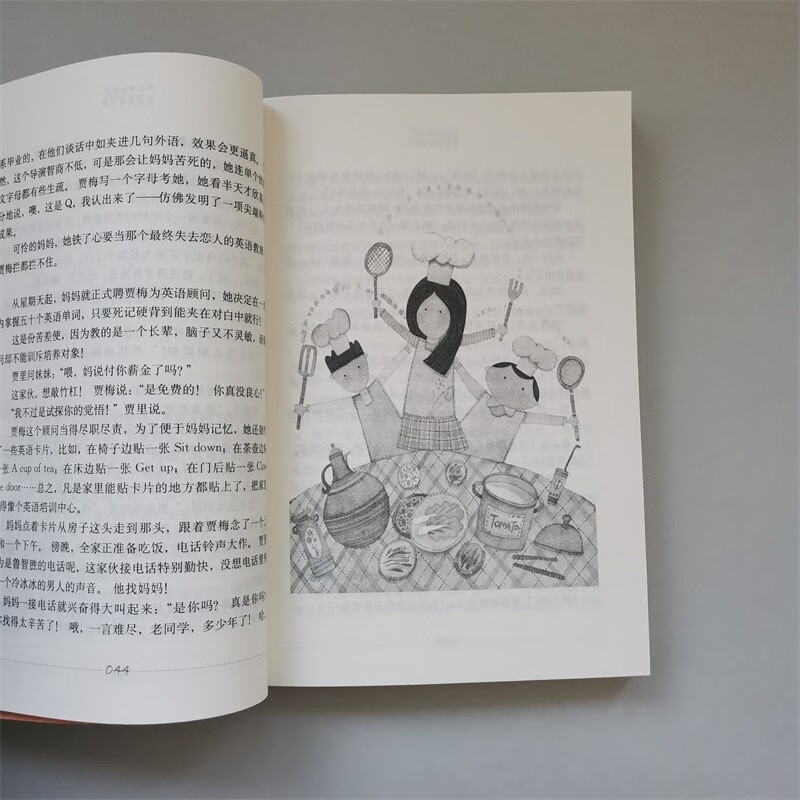 系毕业的，在他们谈话中如夹进几句外语，效果会更逼真，
然，这个导演智商不低，可是那会让妈妈苦死的，她连单个的
文字母都有些生疏。 贾梅写一个字母考她，她看半天才欣
分地说，噢，这是 Q，我认出来了——仿佛发明了一项尖端
成果。
可怜的妈妈，她铁了心要当那个最终失去恋人的英语教
贾梅拦都拦不住。
从星期天起，妈妈就正式聘贾梅为英语顾问，她决定在一
内掌握五十个英语单词，只要死记硬背到能夹在对白中就行！
这是份苦差使，因为教的是一个长辈，脑子又不灵敏，而
问却不能训斥培养对象！
贾里问妹妹：“喂，妈说付你薪金了吗？”
这家伙，想敲竹杠！ 贾梅说：“是免费的！ 你真没良心！”
“我不过是试探你的觉悟！”贾里说。
贾梅这个顾问当得尽职尽责，为了便于妈妈记忆，她还
了一些英语卡片，比如，在椅子边贴一张 Sit down；在茶壶边
一张 A cup of tea；在床边贴一张 Get up；在门后贴一张
e door……总之，凡是家里能贴卡片的地方都贴上了，把家
得像个英语培训中心。
妈妈点着卡片从房子这头走到那头，跟着贾梅念了一个
和一个下午。 傍晚，全家正准备吃饭，电话铃声大作。 贾
为是鲁智胜的电话呢，这家伙接电话特别勤快，没想电话里
一个冷冰冰的男人的声音。 他找妈妈！
妈妈一接电话就兴奋得大叫起来：“是你吗？ 真是你吗？
不找得太辛苦了！ 哦，一言难尽，老同学，多少年了！ 哈
044
TOMATO